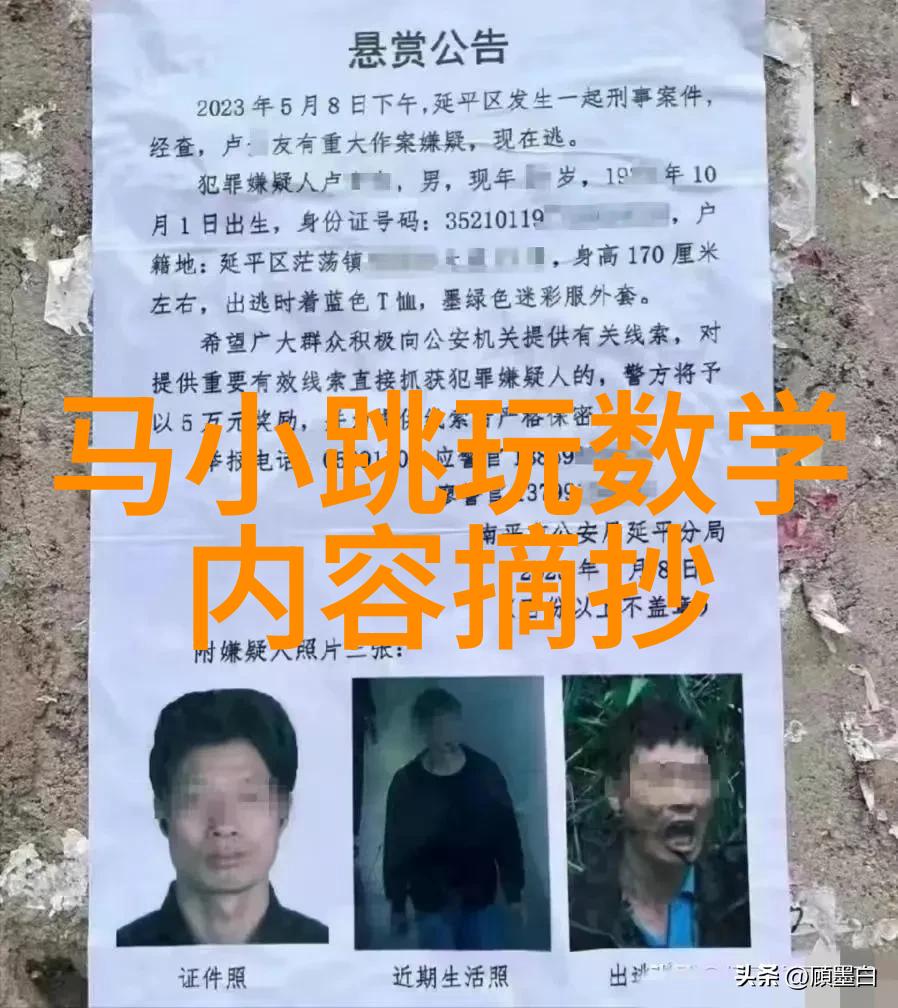 悬赏公告
2023年5月8日下午,延平区发生一起刑事案件,
经查，卢 友有重大作案嫌疑，现在逃。
犯罪嫌疑人卢 ，男，现年 岁，19 年10
月1日出生，身份证号码：35210119 ，户
籍地：延平区茫荡镇 ，身高170厘米
左右，出逃时着蓝色T恤，墨绿色迷彩服外套。
希望广大群众积极向公安机关提供有关线索，对
提供重要有效线索直接抓获犯罪嫌疑人的，警方将予
以5万元奖励，
马小跳玩数学
举报电话 应警官
延平分局
内容摘抄
附嫌疑人照片三张：
证件照
近期生活照
出逃
头条 @顾墨白